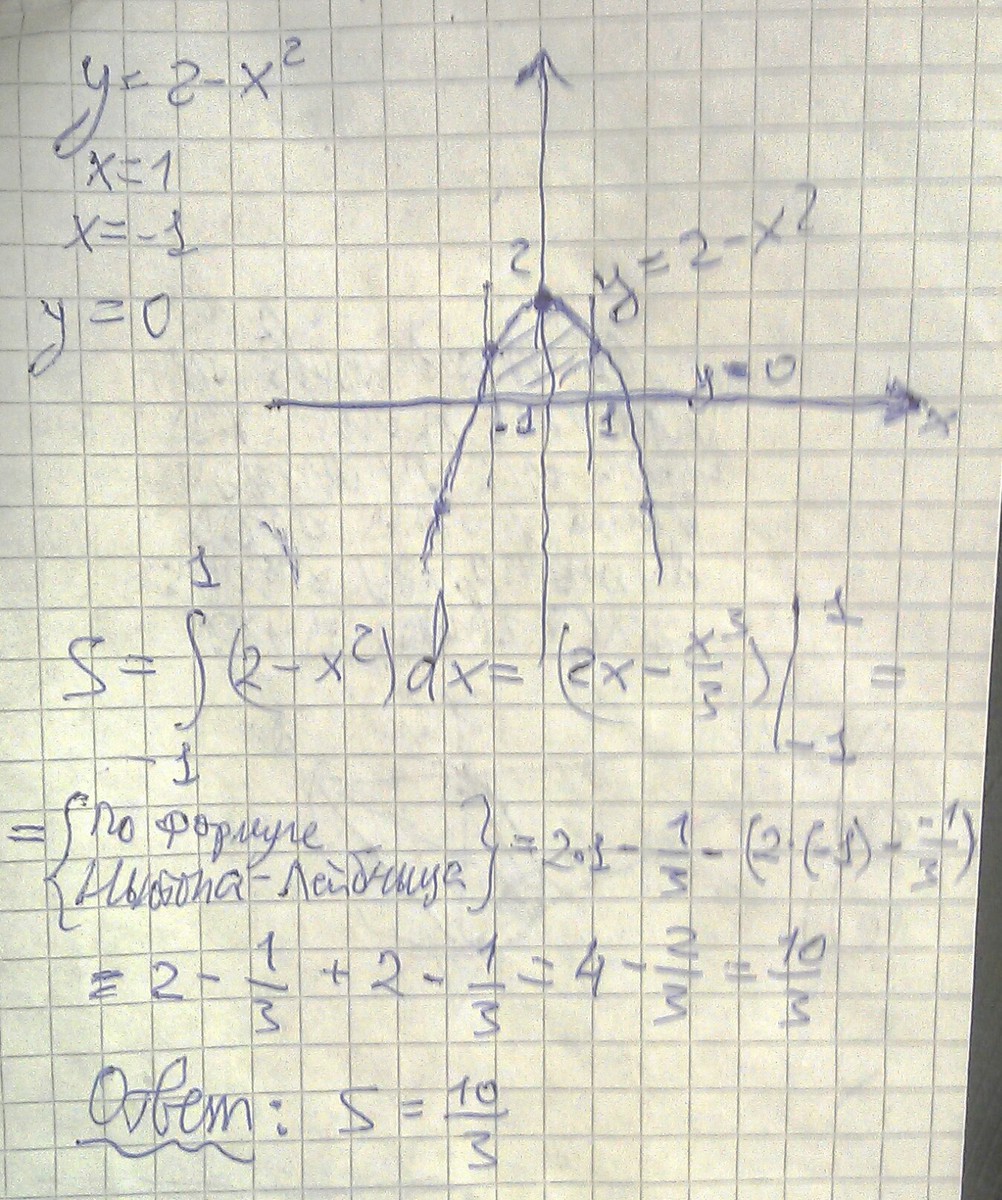 y = 2 - x²
x = 1
x = -1
y = 0
2
y = 2 - x²
y = 0
-1 1 x
S = ∫₋₁¹ (2 - x²) dx = (2x - x³/3) |₋₁¹ =
= {По формуле
Ньютона-Лейбница} = 2·1 - 1/3 - (2·(-1) - -1/3)
= 2 - 1/3 + 2 - 1/3 = 4 - 2/3 = 10/3
Ответ: S = 10/3